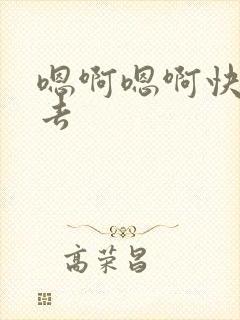 嗯啊嗯啊快
去
高荣昌